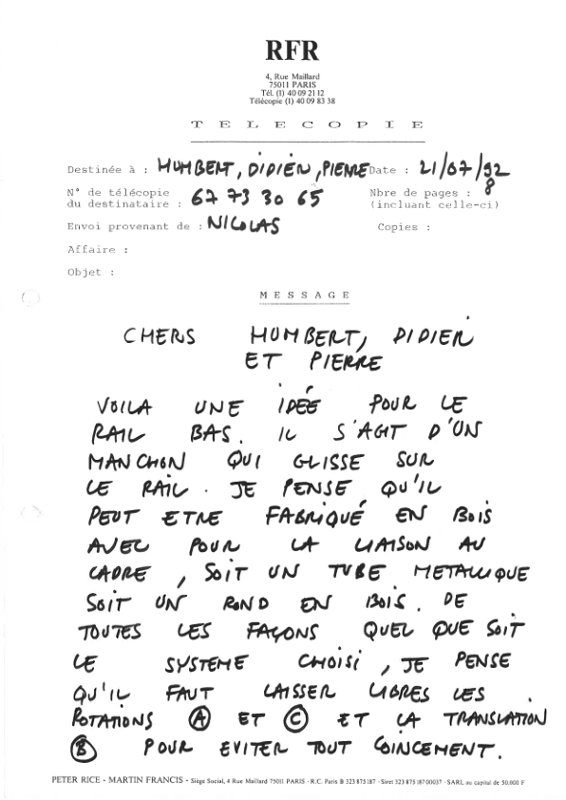 RFR
4, Rue Maillard
75011 PARIS
Tél. (1) 40 09 21 12
Télécopie (1) 40 09 83 38
TELECOPIE
Destinée à : HUMBERT, DIDIER, PIERRE Date : 21/07/92
N° de télécopie Nbre de pages : 8
du destinataire : 67 73 30 65 (incluant celle-ci)
Envoi provenant de : NICOLAS Copies :
Affaire :
Objet :
MESSAGE
CHERS HUMBERT, DIDIER
ET PIERRE
VOILA UNE IDÉE POUR LE
RAIL BAS. IL S'AGIT D'UN
MANCHON QUI GLISSE SUR
LE RAIL. JE PENSE QU'IL
PEUT ETRE FABRIQUÉ EN BOIS
AVEC POUR LA LIAISON AU
CADRE, SOIT UN TUBE METALLIQUE
SOIT UN ROND EN BOIS. DE
TOUTES LES FAÇONS QUEL QUE SOIT
LE SYSTEME CHOISI, JE PENSE
QU'IL FAUT LAISSER LIBRES LES
ROTATIONS A ET C ET LA TRANSLATION
B POUR EVITER TOUT COINCEMENT.
PETER RICE - MARTIN FRANCIS - Siège Social, 4 Rue Maillard 75011 PARIS - R.C. Paris B 323 875 187 - Siret 323 875 187 00037 - SARL au capital de 50.000 F